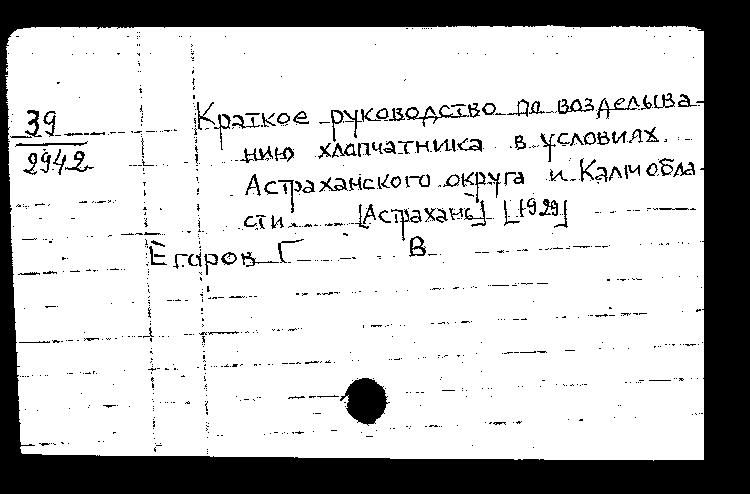 39
2942
Краткое руководство по возделыва-
нию хлопчатника в условиях
Астраханского округа и Калмобла-
сти. [Астрахань] [1929]
Егоров Г В